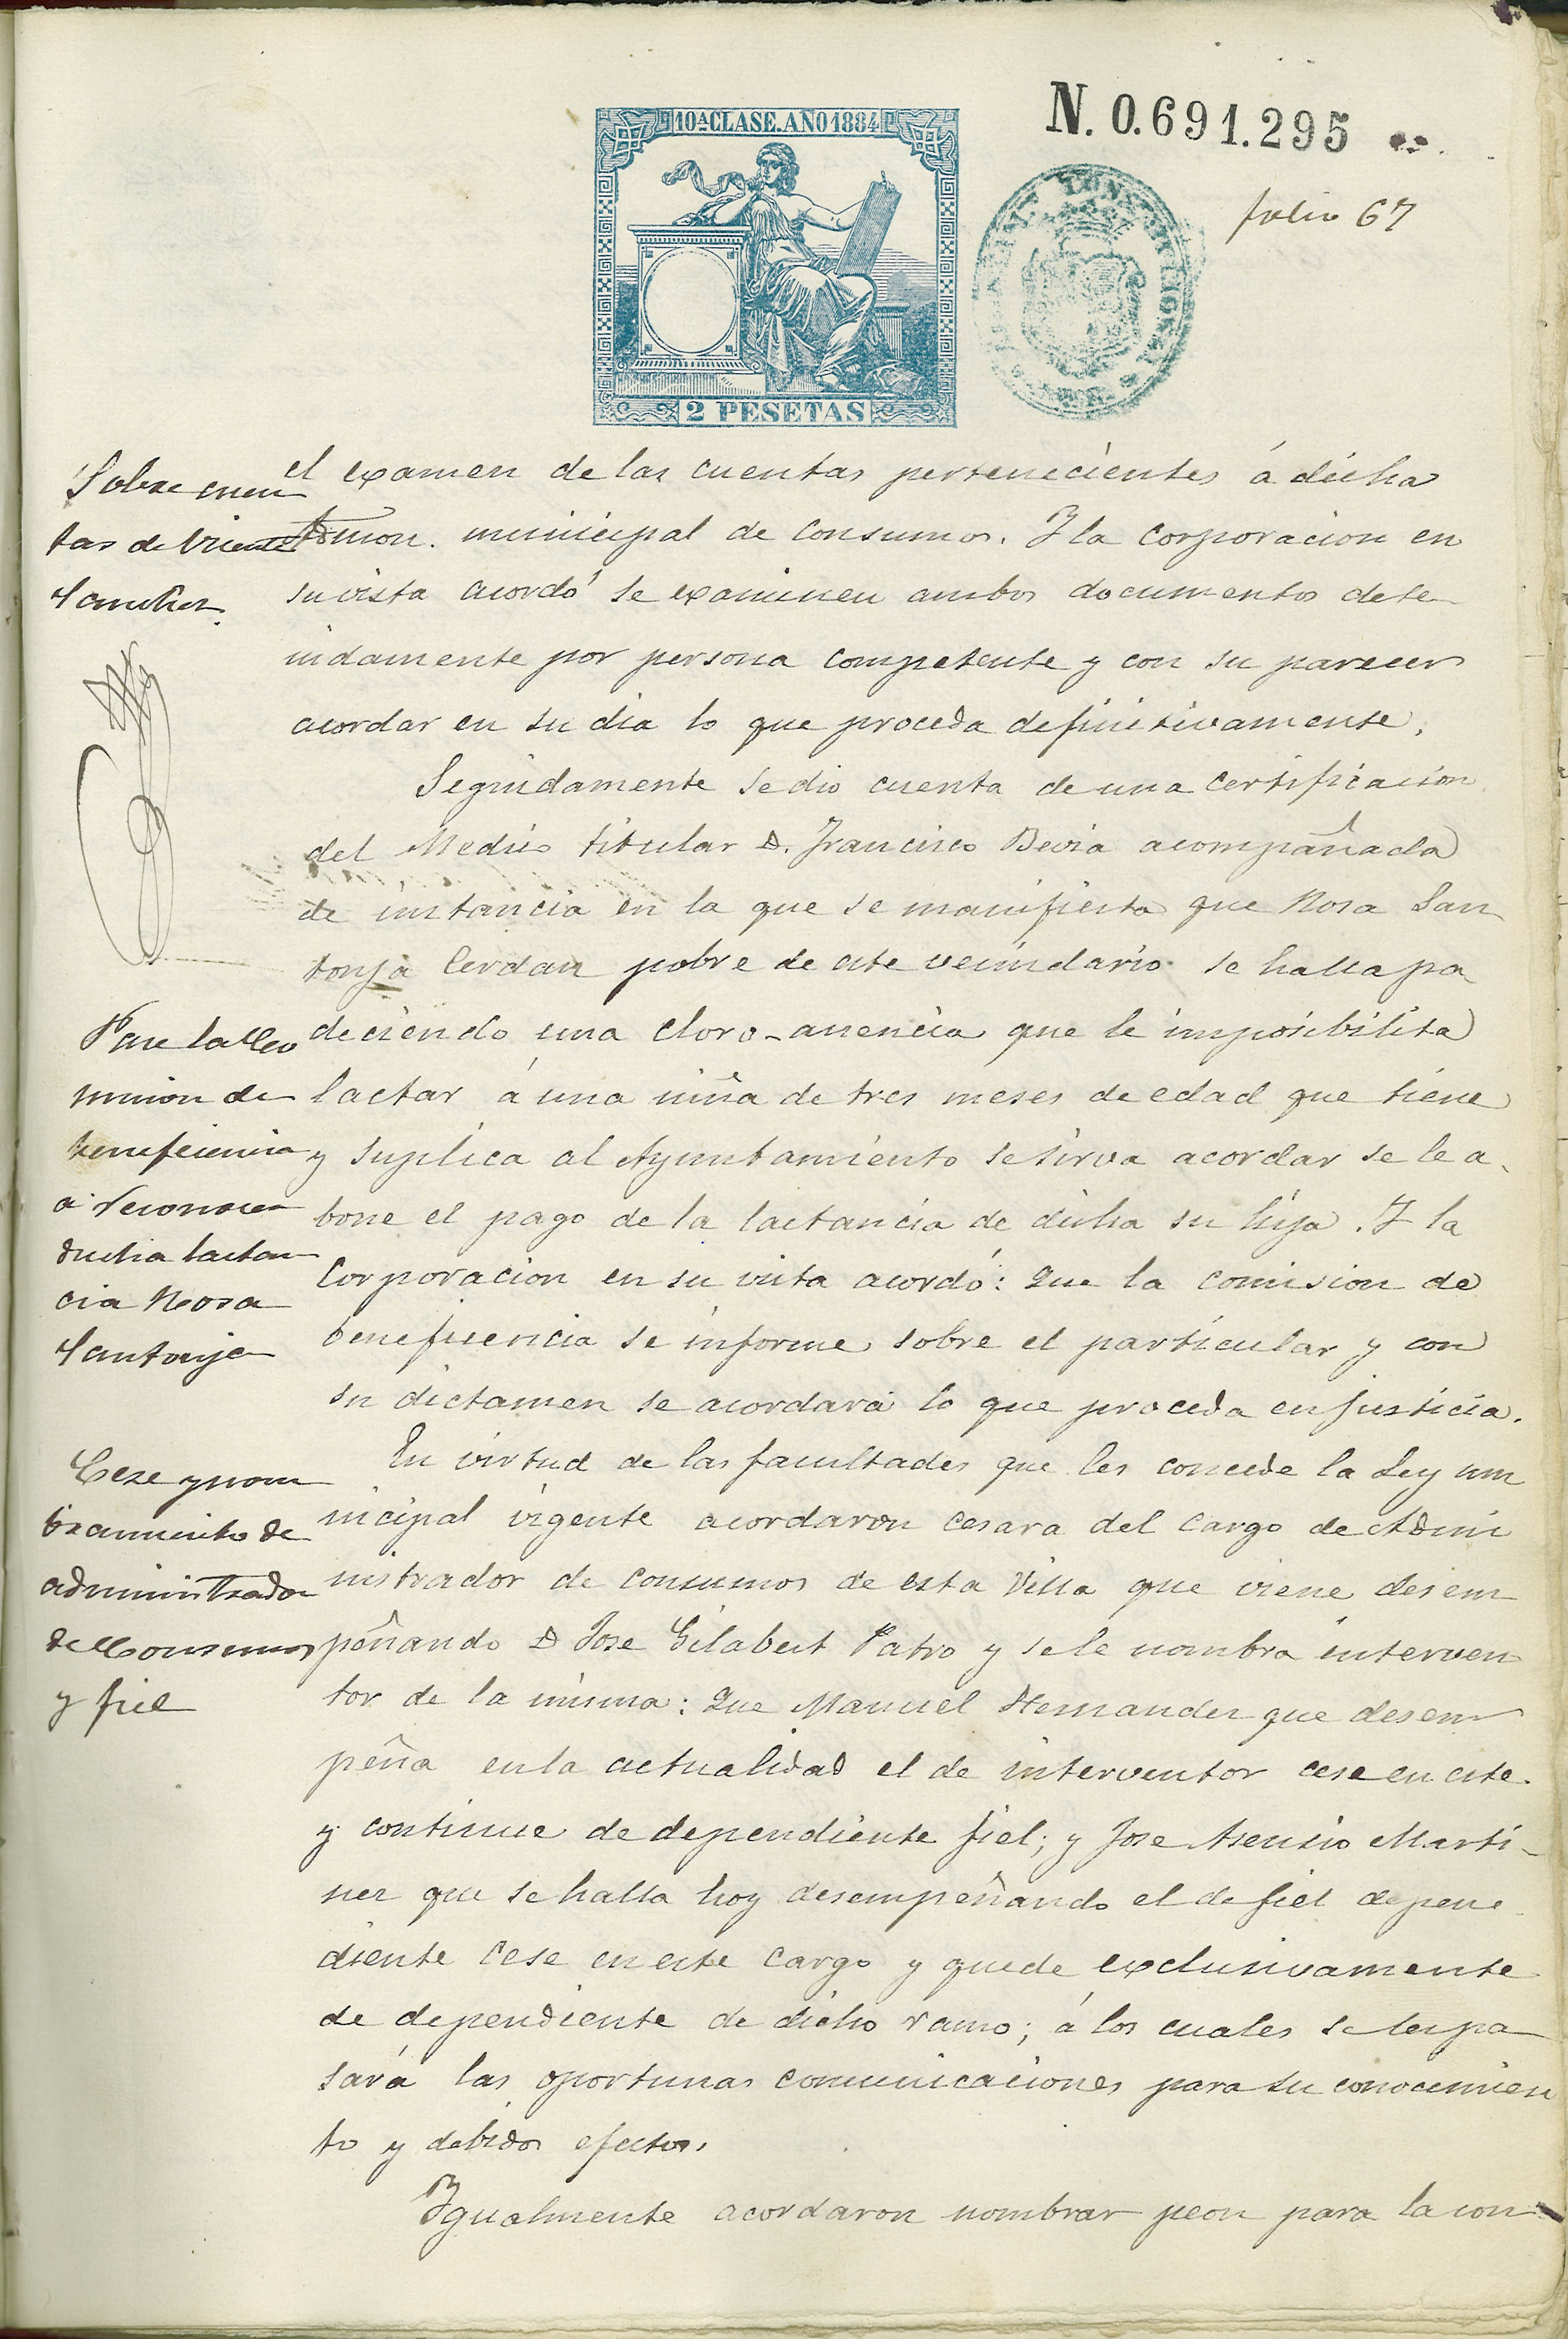 10ª CLASE. AÑO 1884
2 PESETAS
N. 0.691.295
folio 67
Sobre cuen
tas de Vicente
Sanchez.
el examen de las cuentas pertenecientes á dicha
Admon. municipal de consumos. Y la corporacion en
su vista acordó se examinen ambos documentos dete
nidamente por persona competente y con su parecer
acordar en su dia lo que proceda definitivamente.
Seguidamente se dio cuenta de una certificacion
del Medico titular D. Francisco Devia acompañada
de instancia en la que se manifiesta que Rosa San
tonja Cerdan pobre de este vecindario se halla pa
Pase la Co
mision de
beneficencia
a reconocer
dicha lactan
cia Rosa
Santonja
deciendo una cloro-anencia que le imposibilita
lactar á una niña de tres meses de edad que tiene
y suplica al Ayuntamiento se sirva acordar se le a-
bone el pago de la lactancia de dicha su hija. Y la
Corporacion en su vista acordó: Que la comision de
beneficencia se informe sobre el particular y con
su dictamen se acordará lo que proceda en justicia.
Cese y nom
bramiento de
administrador
de Consumos
y fiel
En virtud de las facultades que les concede la Ley mu
nicipal vigente acordaron cesara del cargo de Admi
nistrador de consumos de esta Villa que viene desem
peñando D Jose Gilabert Patro y se le nombra interven
tor de la misma: Que Manuel Hernandez que desem
peña en la actualidad el de interventor cese en este
y continue de dependiente fiel; y Jose Asensio Marti-
nez que se halla hoy desempeñando el de fiel depen
diente cese en este cargo y quede exclusivamente
de dependiente de dicho ramo; á los cuales se les pa
sará las oportunas comunicaciones para su conocimien
to y debidos efectos.
Igualmente acordaron nombrar peon para la con